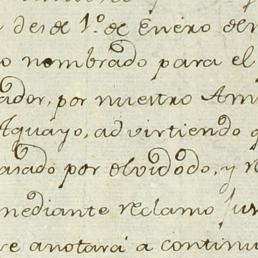 desde 1º de Enero de
o nombrado para el
ador, por nuestro Am
Aguayo, advirtiendo q
asado por olvidodo, y
mediante reclamo Jur
se anotará a continu